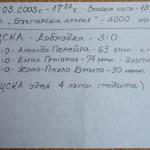 03.2003г. - 17³⁰ч. Висша лига - 18
„Българска армия" - 4000
ЦСКА - Добруджа - 3:0
:0 - Агналдо Перейра - 63 мин.
:0 - Емил Гъргоров - 74 мин. - дузпа
:0 - Жоао Пауло Брито - 90 мин.
ЦСКА удря 4 пъти гредите)